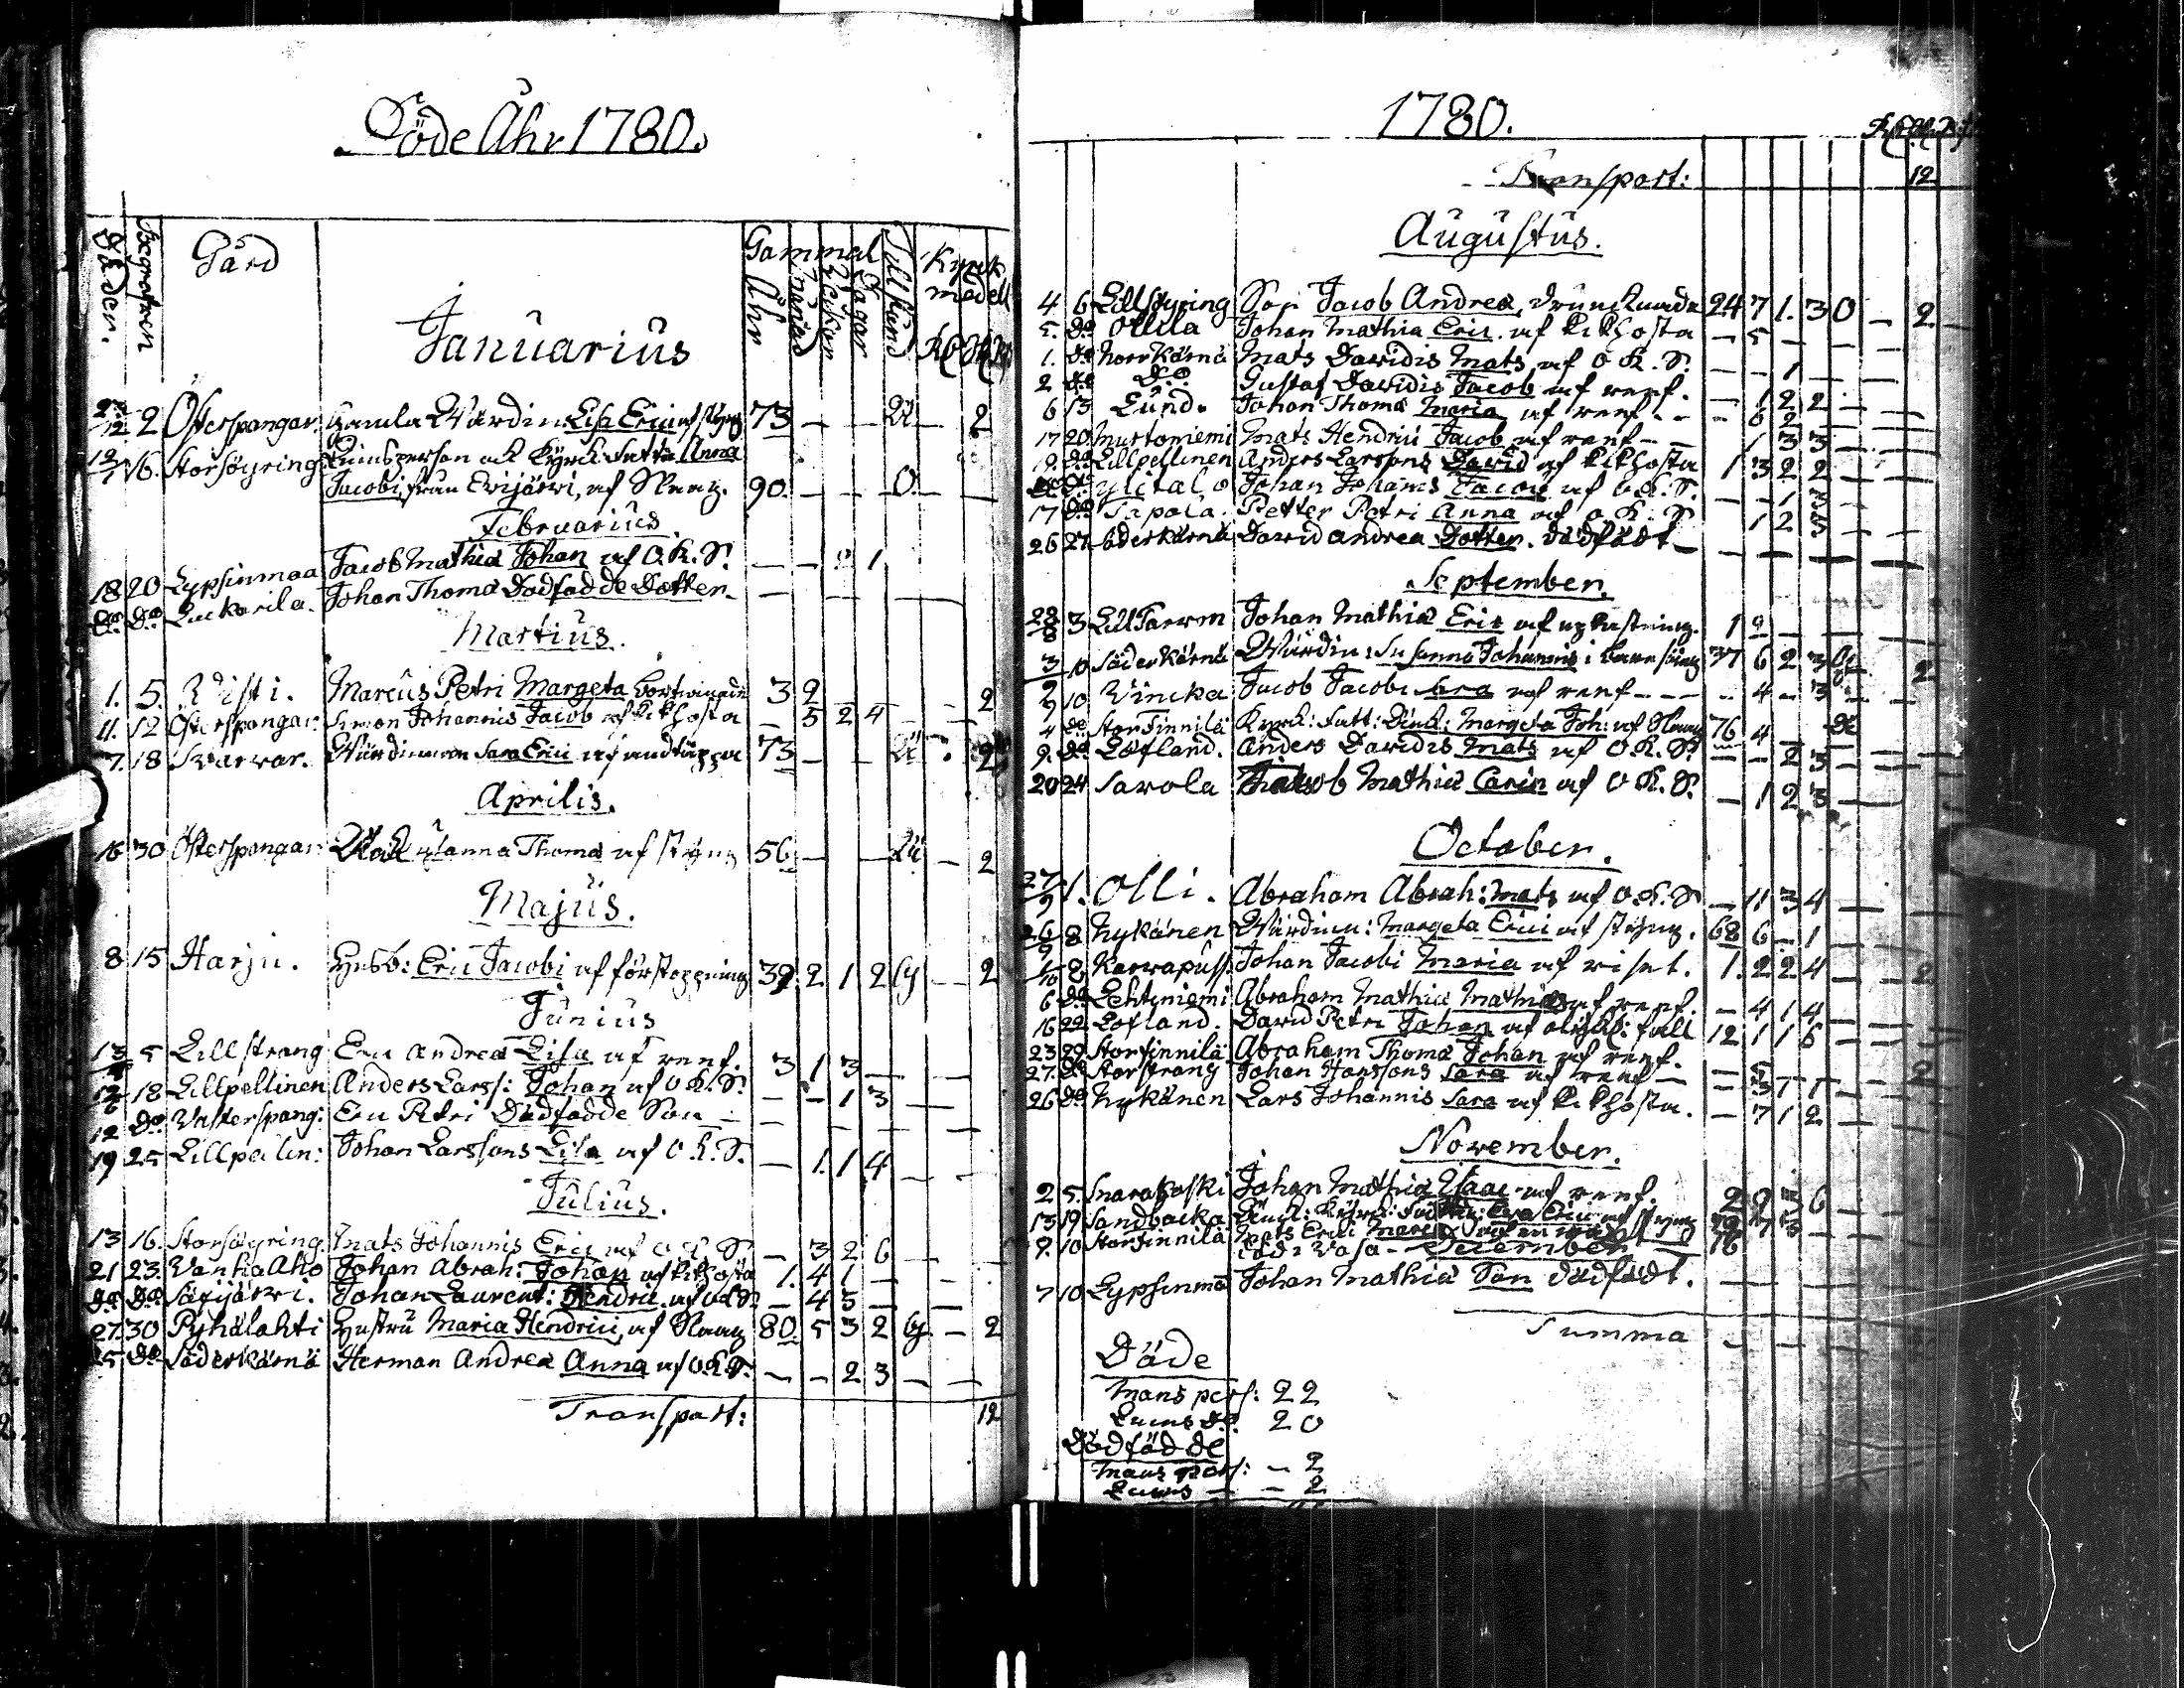 Döde Åhr 1780.
Döden. Begrafven Gård Gammal Åhr Månad Veckor Dagar Tillstånd Kyrk medell
Januarius
2 Österspangar. Gamla Wärdin: Lisa Erici af styng 73 — — — 2
16. Storsöyring: Qvinsperson och Kyrck-fattig Anna
Jacobi, från Evijärvi, af Slaag. 90. — — —
Februarius
18 20 Lypsinmaa Jacob Mathiæ Johan af O.K.S. — — 2 1
Do Do Luckarila. Johan Thomæ Dödfödde Dotter —
Martius.
1. 5. Risti. Marcus Petri Margeta bortvinade 3 2 — — 2
11. 12 Österspangar. Simon Johannis Jacob af kikhosta — 5 2 4
7. 18 Svarvar. Wärdinnan Sara Erici af andtäppa 73 — — — 2
Aprilis.
16 30 Österspangar Susanna Thomæ af styng 56 — — — 2
Majus.
8 15 Harju. Husb: Eric Jacobi af förstoppning 39 2 1 2 G — 2
Junius
13 5 Lillstrang Eric Andreæ Lisa af renf. 3 1 3 — —
12/6 18 Lillpellinen Anders Larss: Johan af O.K.S. — — 1 3 —
12 Do Wästerspang: Eric Petri Dödfödde Son — — — —
19 25 Lillpellin: Johan Larssons Lisa af O.K.S. — 1. 1 4 — —
Julius.
13 16. Storsöyring. Mats Johannis Eric af O.K.S. — 3 2 6 —
21 23. Vanha Aho Johan Abrah: Johan af kikhosta 1. 4 1 —
Do Do Säfijärvi. Johan Laurent: Hendric af O.K.S. — 4 3 —
27. 30 Pyhälahti Hustru Maria Hendrici, af Slaag 80 5 3 2 G. — 2
25 Do Söderkärnä Herman Andreæ Anna af O.K.S. — — 2 3 — —
Transport: 12
1780.
Transport: 12
Augustus.
4 6 Lillsöyring Son Jacob Andreæ, drunknade 24 7 1. 3 O — 2 —
5. Do Ollila Johan Mathiæ Eric af kikhosta — 5 — — —
1. Do Norrkärnä Mats Davidis Mats af O.K.S. — — 1 — —
2 Do Do Gustaf Davidis Jacob af renf. — 1 2 2 —
6 13 Lund. Johan Thomæ Maria af renf — — 6 2 —
17 20 Murtoniemi Mats Hendrici Jacob af renf — 1 3 3 —
19. Do Lillpellinen Anders Larssons David af kikhosta 1 3 2 2 —
Do Do Ylitalo Johan Johannis Jacob af O.K.S. — — 1
17 Do Sapola. Petter Petri Anna af O.K.S. — 1 2 5 —
26 27 Söderkärnä David Andreæ Dotter. dödfödt — — — —
September.
28/8 3 LillTarvon Johan Mathiæ Eric af upkastning. 1 9 — —
3 10 Söderkärnä Wärdin: Susanna Johannis i barnsäng 37 6 2 3 G 2
10 Vincka Jacob Jacobi Sara af renf — — — 4 — 3
4 Do Storfinnilä Kyrck: fatt: Enck: Margeta Joh: af Slaag 76 4 — —
9. Do Löfland. Anders Davidis Mats af O.K.S. — — 2 3 — —
20 24 Savola Mathiæ Carin af O.K.S. — 1 2 3 —
October.
27/9 1. Olli. Abraham Abrah: Mats af O.K.S — 11 3 4 — —
26/9 8 Nykänen Wärdinn: Margeta Erici af styng. 68 6 — 1 —
1/10 8 Karvapuss: Johan Jacobi Maria af riset. 1. 2 2 4 — — 2
6 Do Lehtiniemi Abraham Mathiæ Mathias af renf. — 4 1 4 —
16 22 Löfland. David Petri Johan af olyckl: fall 12 1 1 6 —
23 29 Storfinnilä Abraham Thomæ Johan af renf. — 5 —
27. Do Storstrang Johan Hanssons Sara af renf — — 3 1 1 2
26 Do Nykänen Lars Johannis Sara af kikhosta. — 7 1 2 —
November.
2 5. Snarakoski Johan Mathiæ Isaac af renf. 2 9 3 6 —
13 19 Sandbacka
9. 10 Storfinnilä Mats Erici
död i Vasa — December
7 10. Lypsinmä Johan Mathiæ Son dödfödt. — —
Summa
Döde
Mans pers: 22
Quins Do 20
Dödfödde
Mans pers: — 2
Quins — — 2